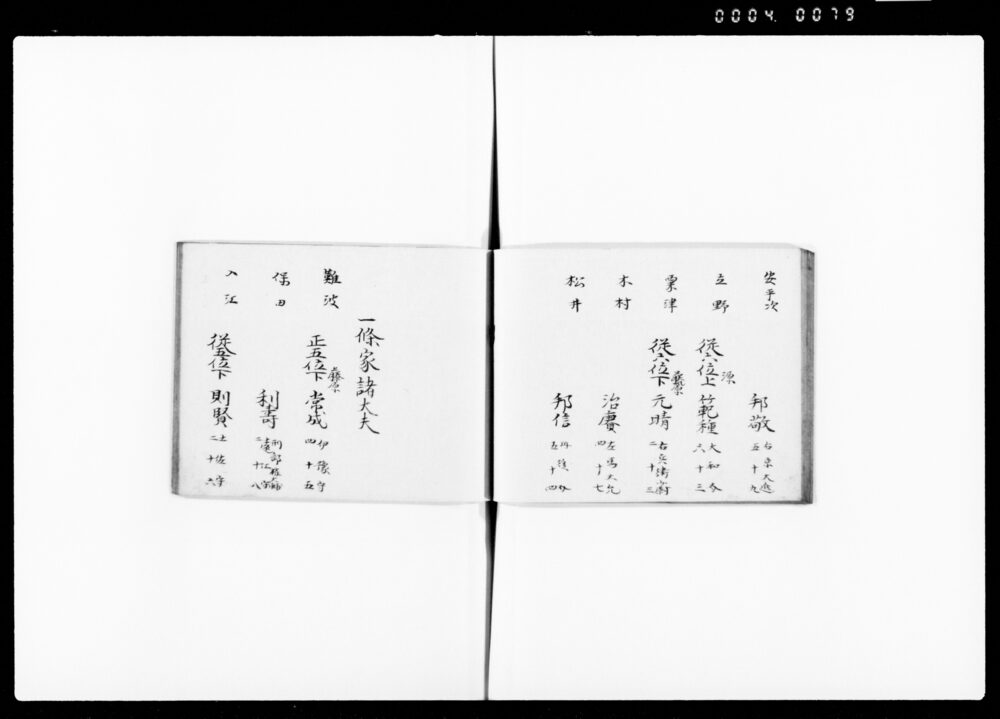 0004 0079
安平次 邦敬 右京大進 五十九
立野 従六位上 源 範種 大和介 六十三
粟津 従六位下 藤原 元晴 右兵衛少尉 二十三
木村 治賡 左馬大允 四十七
松井 邦信 丹後介 五十四
一條家諸大夫
難波 正五位下 藤原 常成 伊豫守 四十五
保田 利壽 刑部権大輔 遠江守 二十八
入江 従五位下 則賢 土佐守 二十六